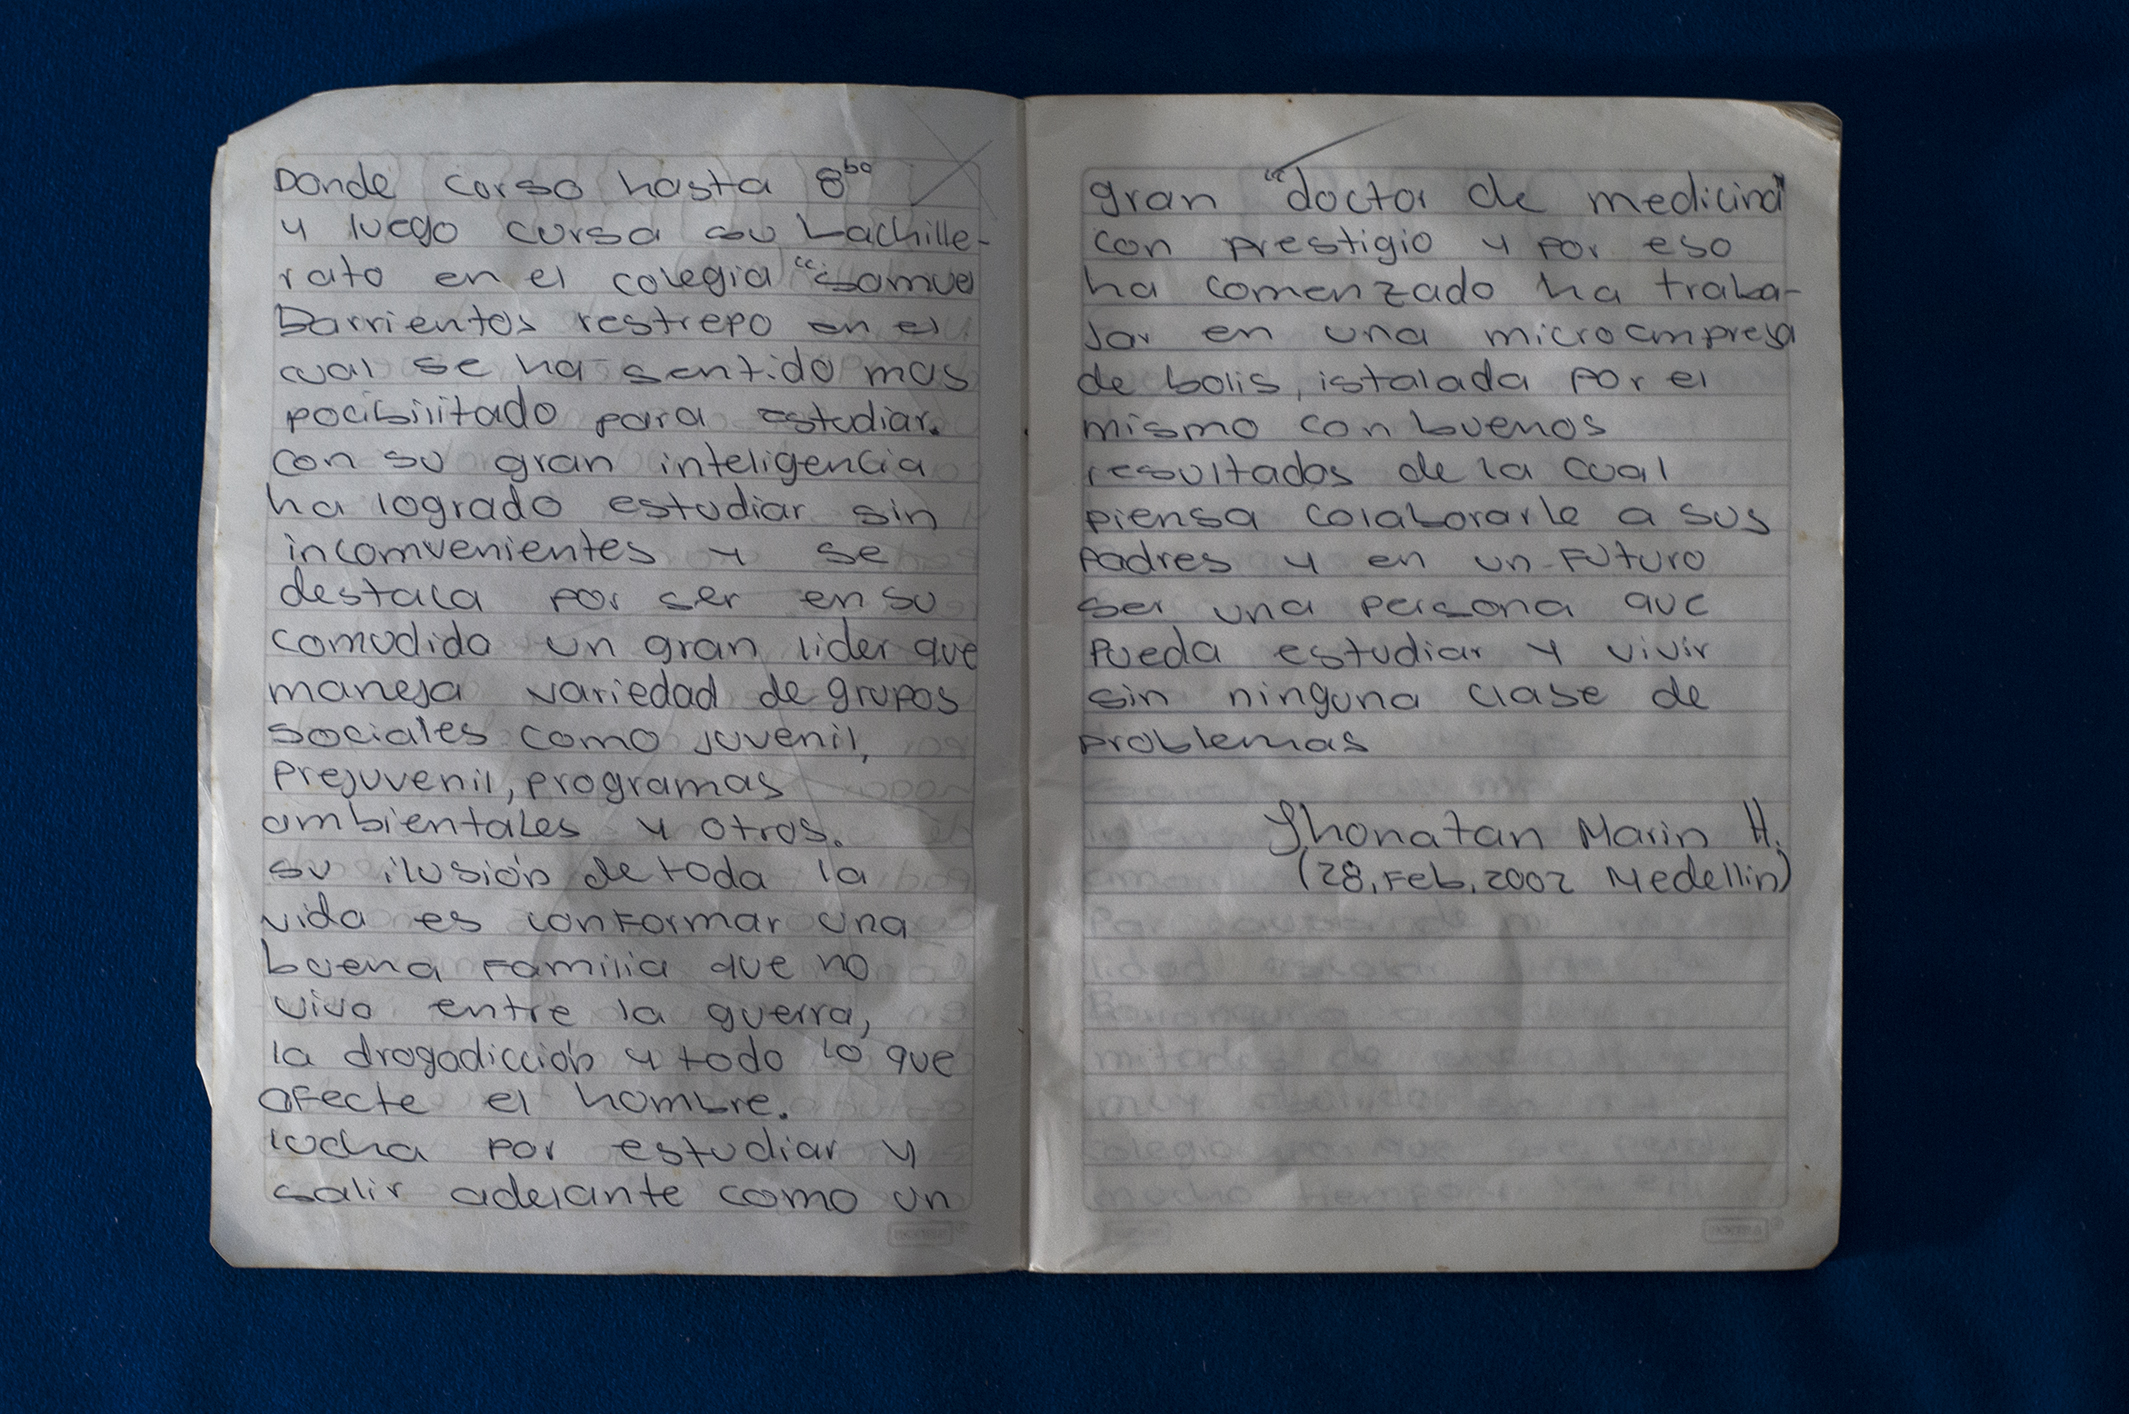 Donde curso hasta 8bo
y luego cursa su bachille-
rato en el colegia "samuel
Barrientos restrepo en el
cual se ha sentido mas
pocibilitado para estudiar.
con su gran inteligencia
ha logrado estudiar sin
incomvenientes y se
destaca por ser en su
comudida un gran lider que
maneja variedad de grupos
sociales como juvenil,
prejuvenil, programas
ambientales y otros.
su ilusión de toda la
vida es conformar una
buena familia que no
viva entre la guerra,
la drogadicción y todo lo que
afecte el hombre.
lucha por estudiar y
salir adelante como un
gran "doctor de medicina"
con prestigio y por eso
ha comenzado ha traba-
jar en una microempresa
de bolis, istalada por el
mismo con buenos
resultados de la cual
piensa colaborarle a sus
padres y en un futuro
ser una persona que
pueda estudiar y vivir
sin ninguna clase de
problemas
Jhonatan Marin H.
(28, Feb, 2002 Medellin)